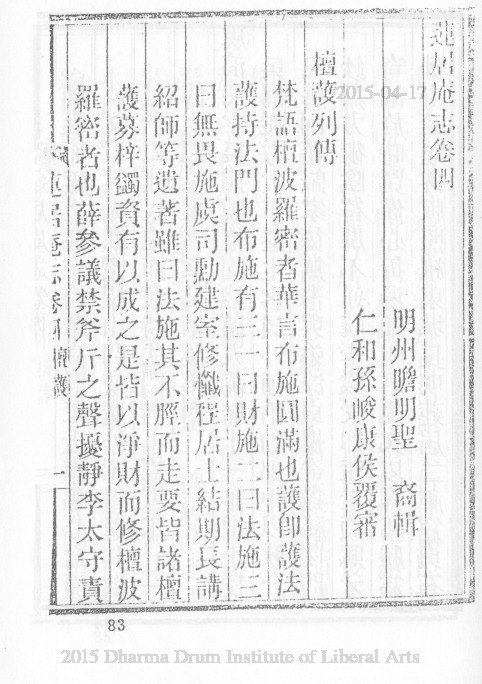 蓮居庵志卷四
明州瞻明聖 裔輯
仁和孫峻康侯覆審
檀護列傳
梵語檀波羅密者華言布施圓滿也護卽護法
護持法門也布施有三一曰財施二曰法施三
曰無畏施虞司勳建室修懺程居士結期長講
紹師等遺著雖曰法施其不脛而走要皆諸檀
護募梓蠲資有以成之是皆以淨財而修檀波
羅密者也薛參議禁斧斤之聲擾靜李太守責
蓮居庵志卷四 檀護 一
2015-04-17
83
2015 Dharma Drum Institute of Liberal Arts